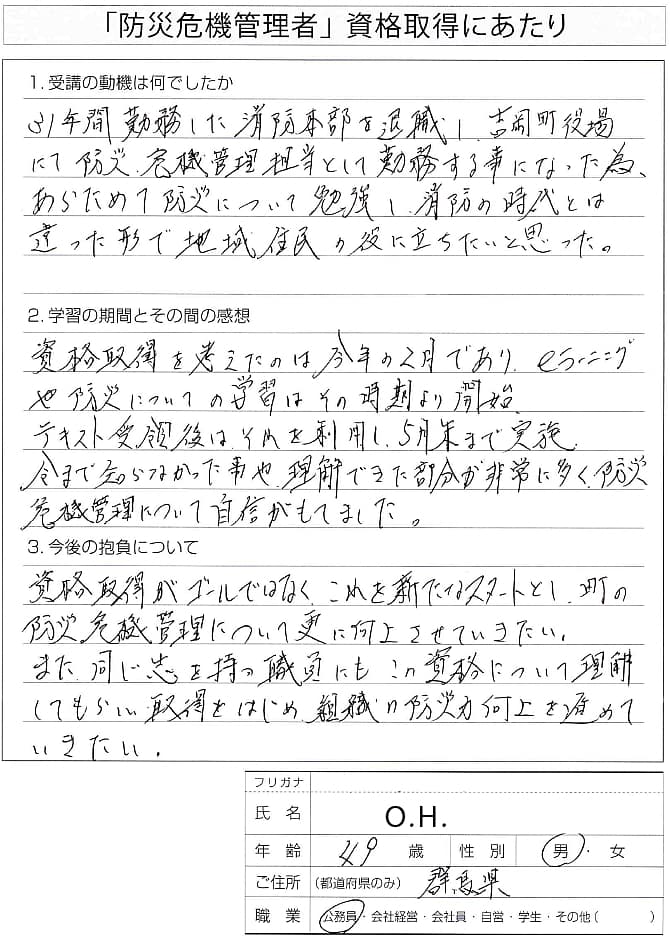 「防災危機管理者」資格取得にあたり
1. 受講の動機は何でしたか
31年間勤務した消防本部を退職し、吉岡町役場
にて防災、危機管理担当として勤務する事になった為、
あらためて防災について勉強し、消防の時代とは
違った形で地域住民の役に立ちたいと思った。
2. 学習の期間とその間の感想
資格取得を考えたのは今年の2月であり、eラーニング
や防災についての学習はその時期より開始。
テキスト受領後はそれを利用し、5月末まで実施。
今まで知らなかった事や、理解できた部分が非常に多く、防災
危機管理について自信がもてました。
3. 今後の抱負について
資格取得がゴールではなく、これを新たなスタートとし、町の
防災危機管理について更に向上させていきたい。
また、同じ志を持つ職員にもこの資格について理解
してもらい、取得をはじめ、組織の防災力向上を進めて
いきたい。
フリガナ
氏名 O.H.
年齢 49 歳 性別 男・女
ご住所 (都道府県のみ) 群馬県
職業 公務員・会社経営・会社員・自営・学生・その他( )